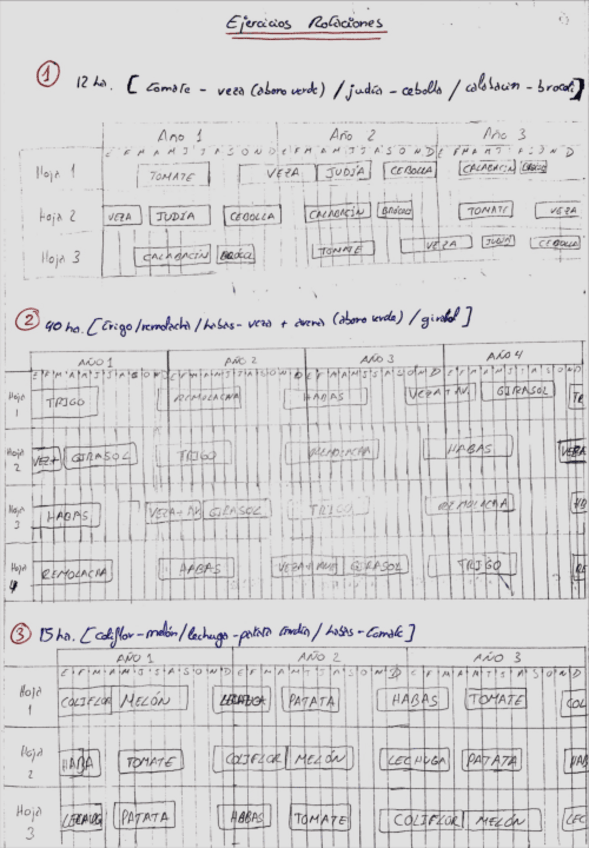 Ejercicios Rotaciones
① 12 ha. [ tomate - veza (abono verde) / judía - cebolla / calabacin - brocoli ]
Año 1 Año 2 Año 3
E F M A M J J A S O N D E F M A M J J A S O N D E F M A M J J A S O N D
Hoja 1 TOMATE VEZA JUDÍA CEBOLLA CALABACÍN
Hoja 2 VEZA JUDÍA CEBOLLA CALABACÍN BRÓCOLI TOMATE VEZA
Hoja 3 CALABACÍN BRÓCOLI TOMATE VEZA JUDÍA CEBOLLA
② 40 ha. [ trigo / remolacha / habas - veza + avena (abono verde) / girasol ]
AÑO 1 AÑO 2 AÑO 3 AÑO 4
E F M A M J J A S O N D E F M A M J J A S O N D E F M A M J J A S O N D E F M A M J J A S O N D
Hoja 1 TRIGO REMOLACHA HABAS VEZA + AV. GIRASOL TR
Hoja 2 VEZA+ GIRASOL TRIGO REMOLACHA HABAS VEZA
Hoja 3 HABAS VEZA + AV GIRASOL TRIGO REMOLACHA HB
Hoja 4 REMOLACHA HABAS VEZA + AVE GIRASOL TRIGO RE
③ 15 ha. [ coliflor - melón / lechuga - patata / habas - tomate ]
AÑO 1 AÑO 2 AÑO 3
E F M A M J J A S O N D E F M A M J J A S O N D E F M A M J J A S O N D
Hoja 1 COLIFLOR MELÓN LECHUGA PATATA HABAS TOMATE COL
Hoja 2 HABA TOMATE COLIFLOR MELÓN LECHUGA PATATA HAB
Hoja 3 LECHUGA PATATA HABAS TOMATE COLIFLOR MELÓN LEC